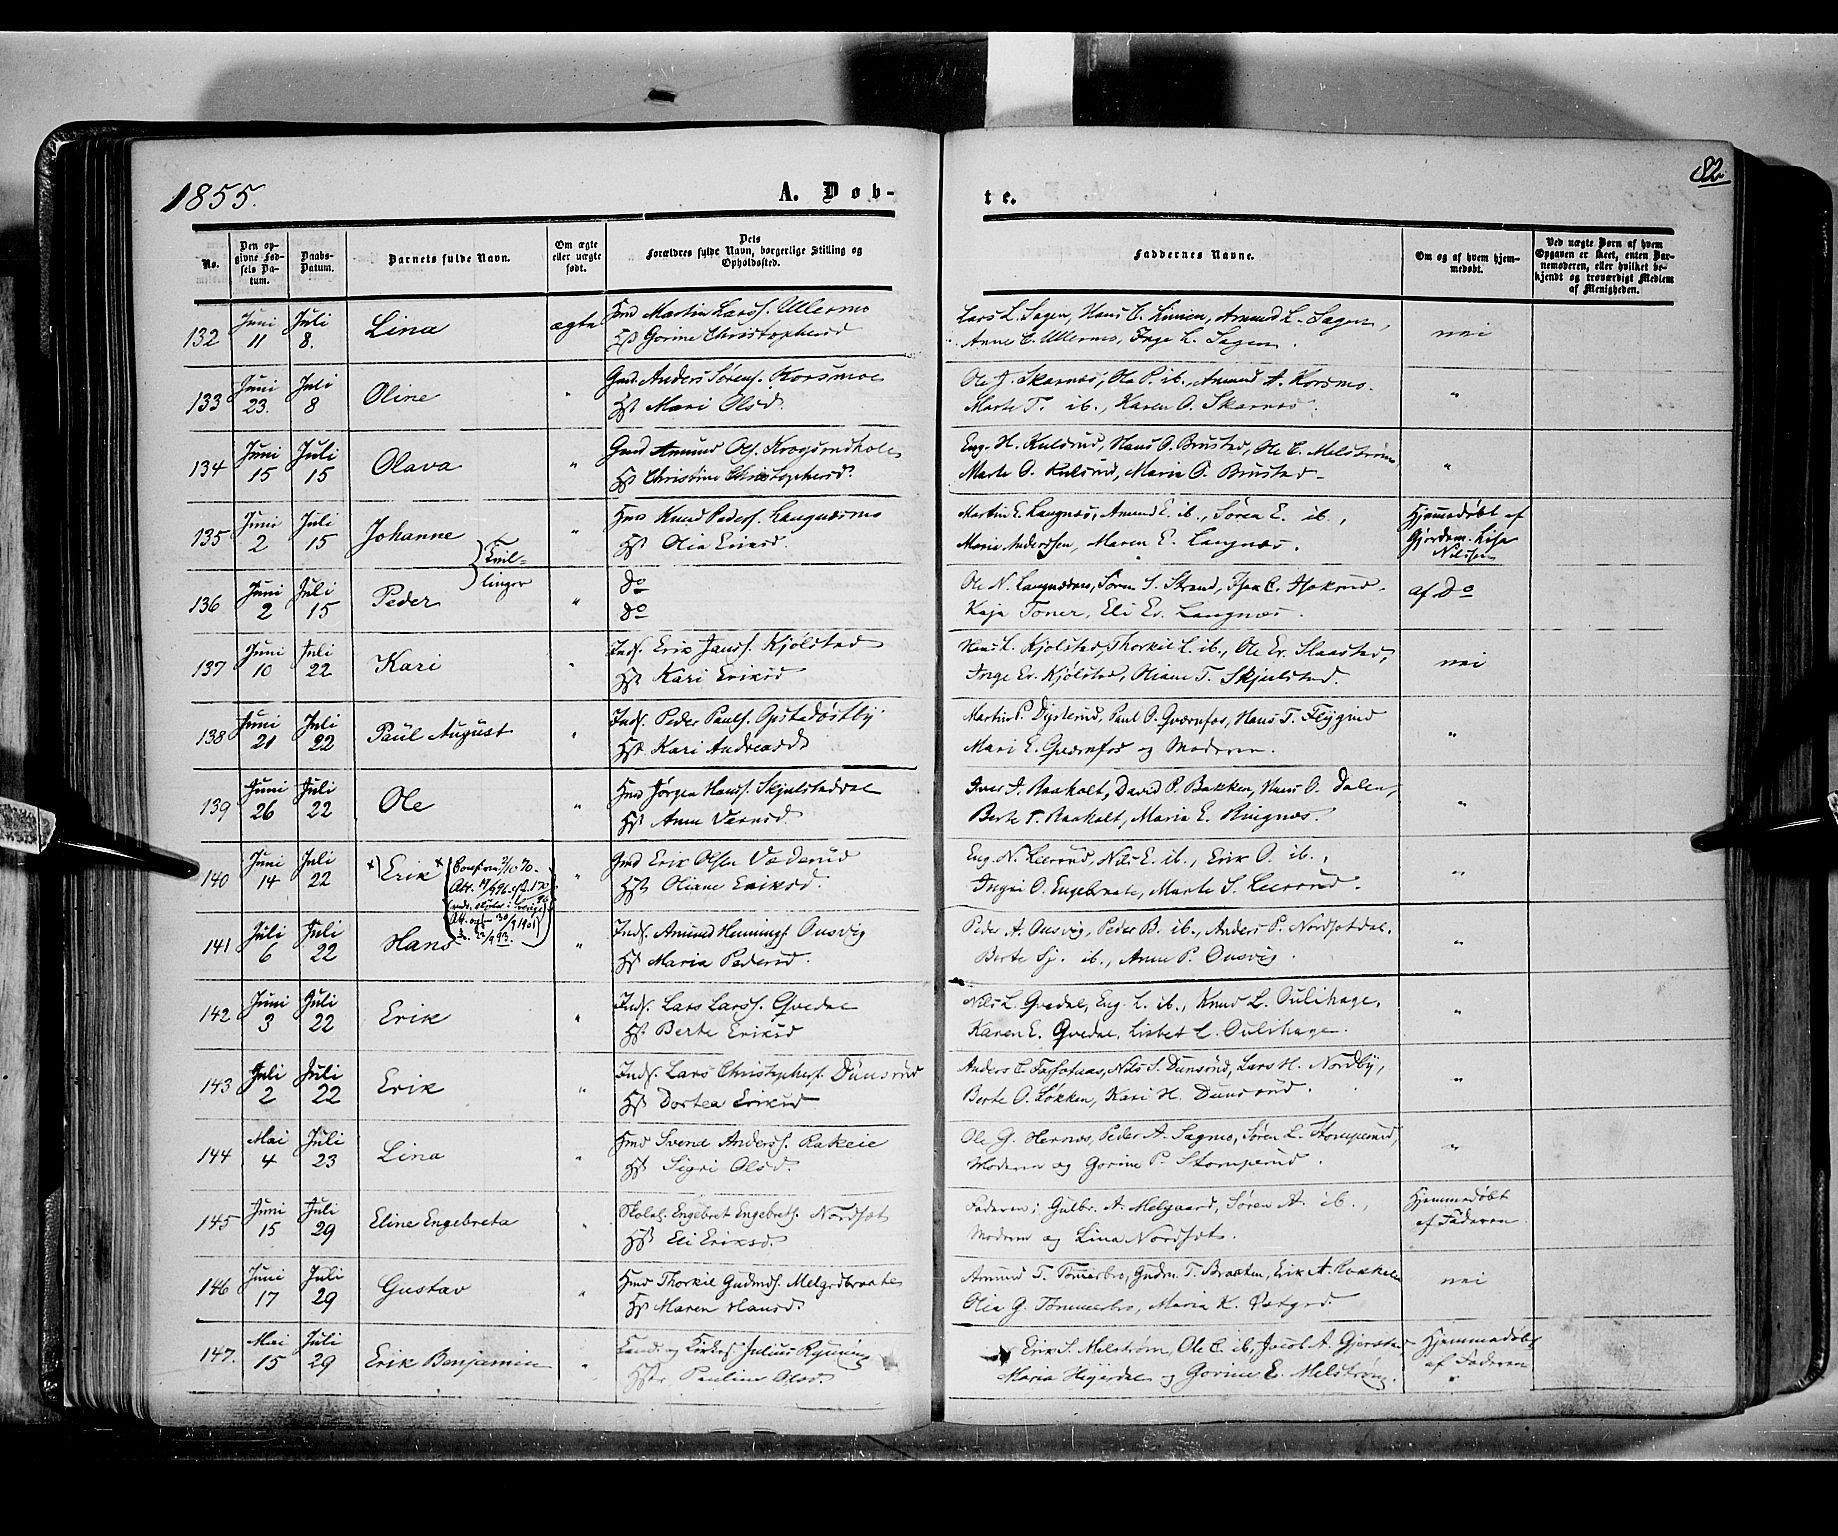 1855.
A. Døb-
te.
82
No.
Den op-
givne Fød-
sels Da-
tum.
Daabs-
Datum.
Barnets fulde Navn.
Om ægte
eller uægte
født.
Dets
Forældres fulde Navn, borgerlige Stilling og
Opholdssted.
Faddernes Navne.
Om og af hvem hjem-
medøbt.
Ved uægte Børn af hvem
Opgaven er skeet, enten Bar-
nemoderen, eller hvilket be-
kjendt og troværdigt Medlem
af Menigheden.
132 Juni 11 Juli 8. Lina ægte
Hmd Martin Larss. Ullermo
Hst Gorine Christophersd
Lars L. Sagen, Hans C. Linnen, Amund L. Sagen,
Anne C. Ullermo, Inge L. Sagen.
nei
133 Juni 23. Juli 8 Oline "
Gmd Anders Sørens. Korsmoe
Hst Mari Olsd.
Ole J. Skarnæs, Ole P. ib., Amund A. Korsmo.
Marte T. ib., Karen O. Skarnæs.
"
134 Juni 15 Juli 15 Olava "
Gmd Amund Ols. Krogsrudhole
Hst Christine Christophersd.
Eng. H. Kulsrud, Hans O. Brustad, Ole C. Melstrøm,
Marte O. Kulsrud, Maria O. Brustad
"
135 Juni 2 Juli 15 Johanne "
Hmd Knud Peders. Langnæsmo
Hst Olia Eriksd
Martin E. Langnæs, Amund E. ib., Søren E. ib.,
Marie Anderssen, Maren E. Langnæs.
Hjemmedøbt af
Gjordem. Lise
Nilssen
Tvil-
linger
136 Juni 2 Juli 15 Peder "
Do
Do
Ole N. Langnæseie, Søren S. Strand,
Kaja Toner, Eli Er. Langnæs.
af Do
137 Juni 10 Juli 22 Kari "
Inds. Erik Jans. Kjølstad
Hst Kari Eriksd
Hans L. Kjølstad, Thorkil L. ib., Ole Er. Slaastad,
Inge Er. Kjølstad, Oliane T. Skjulstad.
nei
138 Juni 21 Juli 22 Paul August "
Inds. Peder Pauls. Opstadøstby
Hst Kari Andreasd
Martin P. Dysterud, Paul O. Qværnfos, Hans T. Flygind
Mari E. Qværnfos og Moderen.
"
139 Juni 26 Juli 22 Ole "
Hmd Jørgen Hans. Skjulstaddal
Hst Anne Larsd.
Iver I. Raaholt, David P. Bakken, Hans O. Dalen,
Berte P. Raaholt, Maria E. Ringnæs.
"
140 Juni 14 Juli 22 Erik "
Gmd Erik Olsen Væderud
Hst Oliane Eriksd.
Eng. N. Leerrud, Nils E. ib., Erik O. ib.,
Ingri O. Engebraate, Marte S. Leerrud.
"
141 Juli 6 Juli 22 Hans "
Inds. Amund Hennings. Ousvig
Hst Maria Pedersd.
Peder A. Ousvig, Peder B. ib., Anders P. Nordsetdal.
Berte Sj. ib., Anne P. Ousvig.
"
142 Juni 3 Juli 22 Erik "
Inds. Lars Larss. Qvedal
Hst Berte Eriksd
Nils L. Qvedal, Eng. L. ib., Knud L. Oulihage,
Karen E. Qvedal, Lisbet L. Oulihage.
"
143 Juli 2 Juli 22 Erik "
Inds. Lars Christophers. Dunsrud
Hst Dortea Eriksd
Nils S. Dunsrud, Lars H. Nordby,
Berte O. Løkken, Kari H. Dunsrud.
"
144 Mai 4 Juli 23 Lina "
Hmd Svend Anders. Rakeie
Hst Sigri Olsd.
Ole G. Hernæs, Peder A. Sagmo, Søren L. Stomperud,
Moderen og Gorine P. Stomperud.
"
145 Juni 15 Juli 29 Eline Engebreta "
Skolel. Engebret Engebrets. Nordset
Hst Eli Eriksd.
Faderen; Gulbr. A. Melgaard, Søren A. ib.,
Moderen og Lina Nordset.
Hjemmedøbt
af Faderen
146 Juni 17 Juli 29 Gustav "
Hmd Thorkil Gudmds. Melgrdbraaten
Hst Maren Hansd.
Amund T. Tømerbro, Gudm. T. Braaten, Erik A. Bakken
Olia G. Tømmerbro, Maria K. Østgrd.
nei
147. Mai 15 Juli 29 Erik Benjamin "
Land. og Kirkes. Julius Ryning
Hstr Pauline Olsd.
Erik S. Melstrøm, Ole C. ib, Jacob A. Gjersøe
Maria Hegerdal og Gorine E. Melstrøm.
Hjemmedøbt
af Faderen
"